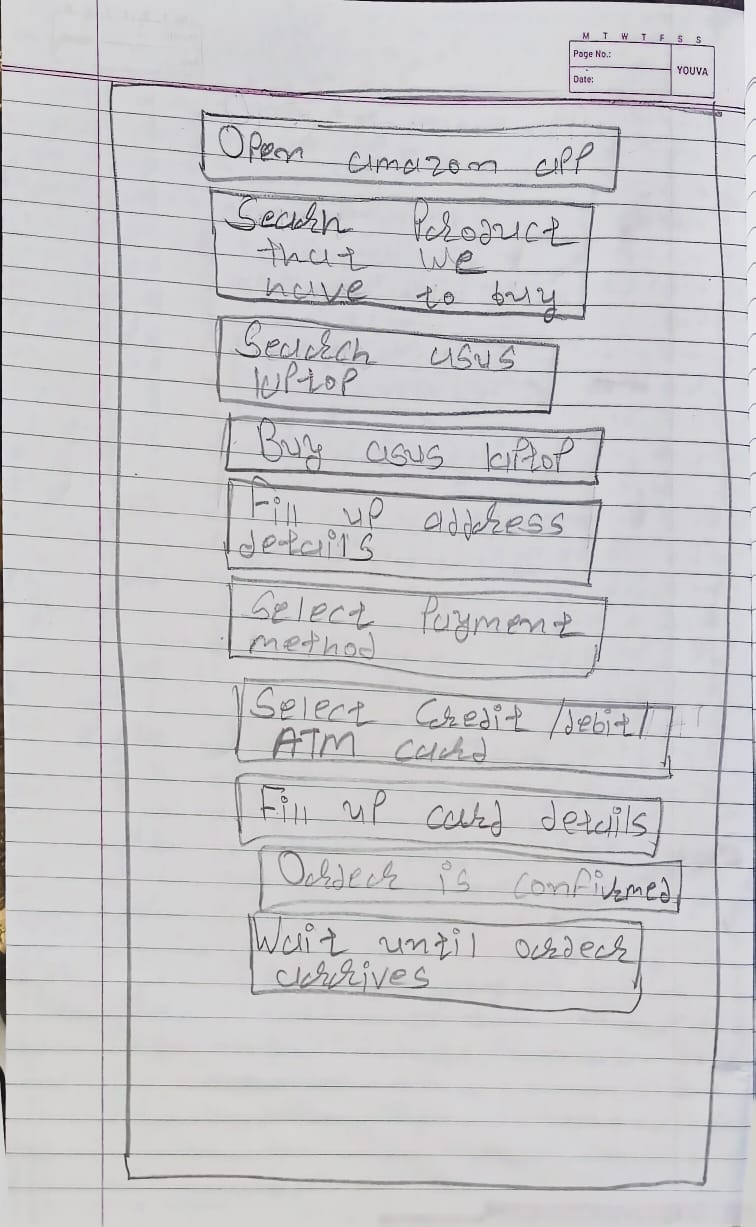 M T W T F S S
Page No.:
YOUVA
Date:
Open amazon app
Search Product
that we
have to buy
Search asus
laptop
Buy asus laptop
Fill up address
details
Select Payment
method
Select Credit /debit/
ATM card
Fill up card details
Order is confirmed
Wait until order
arrives